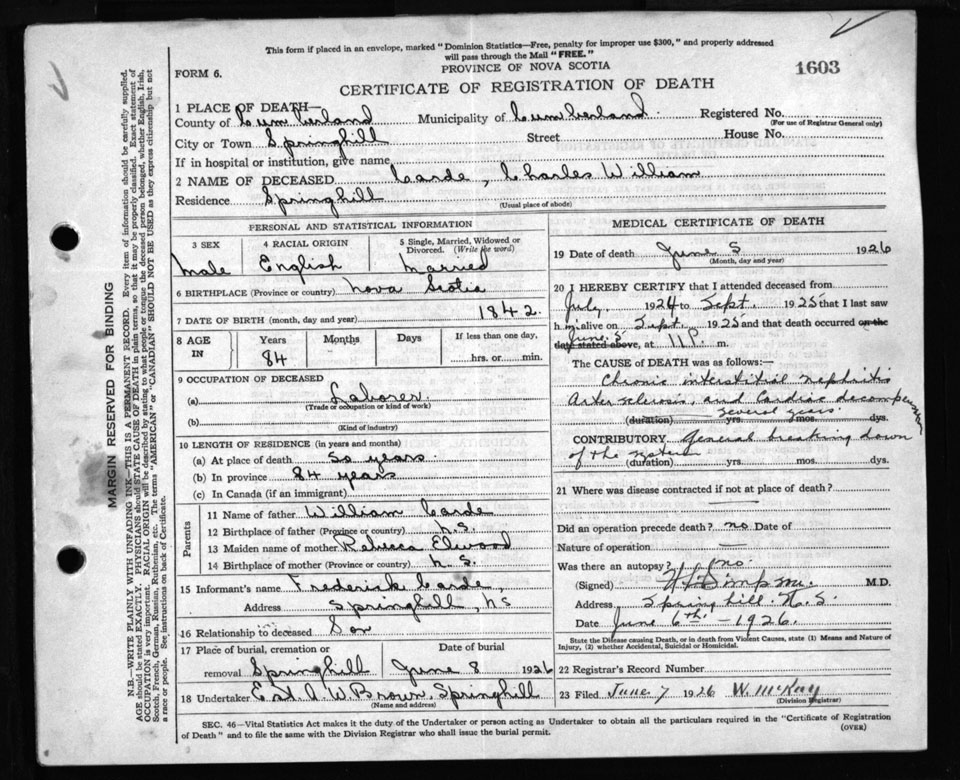 This form if placed in an envelope, marked "Dominion Statistics—Free, penalty for improper use $300," and properly addressed
will pass through the Mail "FREE."
PROVINCE OF NOVA SCOTIA
FORM 6.
1603
CERTIFICATE OF REGISTRATION OF DEATH
1 PLACE OF DEATH—
County of Cumberland Municipality of Cumberland Registered No.
(For use of Registrar General only)
City or Town Springhill Street House No.
If in hospital or institution, give name
2 NAME OF DECEASED Carde, Charles William
Residence Springhill
(Usual place of abode)
PERSONAL AND STATISTICAL INFORMATION
3 SEX 4 RACIAL ORIGIN 5 Single, Married, Widowed or
Divorced. (Write the word)
Male English Married
6 BIRTHPLACE (Province or country) Nova Scotia
7 DATE OF BIRTH (month, day and year) 1842.
8 AGE IN Years Months Days If less than one day,
84 hrs. or min.
9 OCCUPATION OF DECEASED
(a) Laborer
(Trade or occupation or kind of work)
(b)
(Kind of industry)
10 LENGTH OF RESIDENCE (in years and months)
(a) At place of death 50 years
(b) In province 84 years
(c) In Canada (if an immigrant)
Parents
11 Name of father William Carde
12 Birthplace of father (Province or country) N.S.
13 Maiden name of mother Rebecca Elwood
14 Birthplace of mother (Province or country) N.S.
15 Informant's name Frederick Carde,
Address Springhill, NS
16 Relationship to deceased Son
17 Place of burial, cremation or
removal Springhill June 8 1926
18 Undertaker E. A. W Brown, Springhill
(Name and address)
MEDICAL CERTIFICATE OF DEATH
19 Date of death June 5 1926
(Month, day and year)
20 I HEREBY CERTIFY that I attended deceased from
July, 1924 to Sept. 1925 that I last saw
h im alive on Sept. 1925 and that death occurred on the
June. 5
date stated above, at 11 P. m.
The CAUSE OF DEATH was as follows:—
Chronic interstitial nephritis
Artersclerosis, and Cardiac decompension
several years.
(duration) yrs. mos. dys.
CONTRIBUTORY General breaking down
of the system
(duration) yrs. mos. dys.
21 Where was disease contracted if not at place of death?
Did an operation precede death? no Date of
Nature of operation —
Was there an autopsy? no
(Signed) M.D.
Address Springhill N.S.
Date June 6th—1926.
State the Disease causing Death, or in death from Violent Causes, state (1) Means and Nature of
Injury, (2) whether Accidental, Suicidal or Homicidal.
22 Registrar's Record Number
23 Filed June 7 1926 W. McKay
(Division Registrar)
SEC. 46—Vital Statistics Act makes it the duty of the Undertaker or person acting as Undertaker to obtain all the particulars required in the "Certificate of Registration
of Death" and to file the same with the Division Registrar who shall issue the burial permit.
(OVER)
MARGIN RESERVED FOR BINDING
N.B.—WRITE PLAINLY WITH UNFADING INK—THIS IS A PERMANENT RECORD. Every item of information should be carefully supplied.
AGE should be stated EXACTLY. PHYSICIANS should STATE CAUSE OF DEATH in plain terms, so that it may be properly classified. Exact statement of
OCCUPATION is very important. RACIAL ORIGIN will be described by stating to what people or tongue the deceased person belonged, whether English, Irish,
Scotch, French, German, Russian, Ruthenian, etc. The terms "AMERICAN" or "CANADIAN" SHOULD NOT BE USED as they express citizenship but not
a race or people. See instructions on back of Certificate.